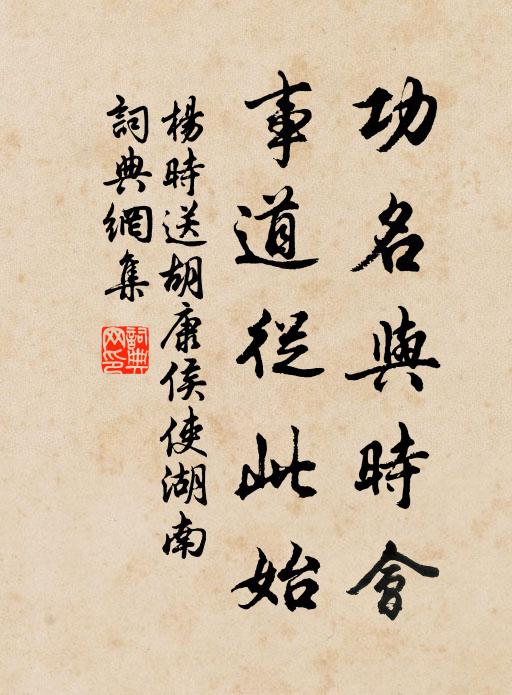 功名與時會
事道從此始
楊時送胡康侯使湖南
詞典網集
詞典網印